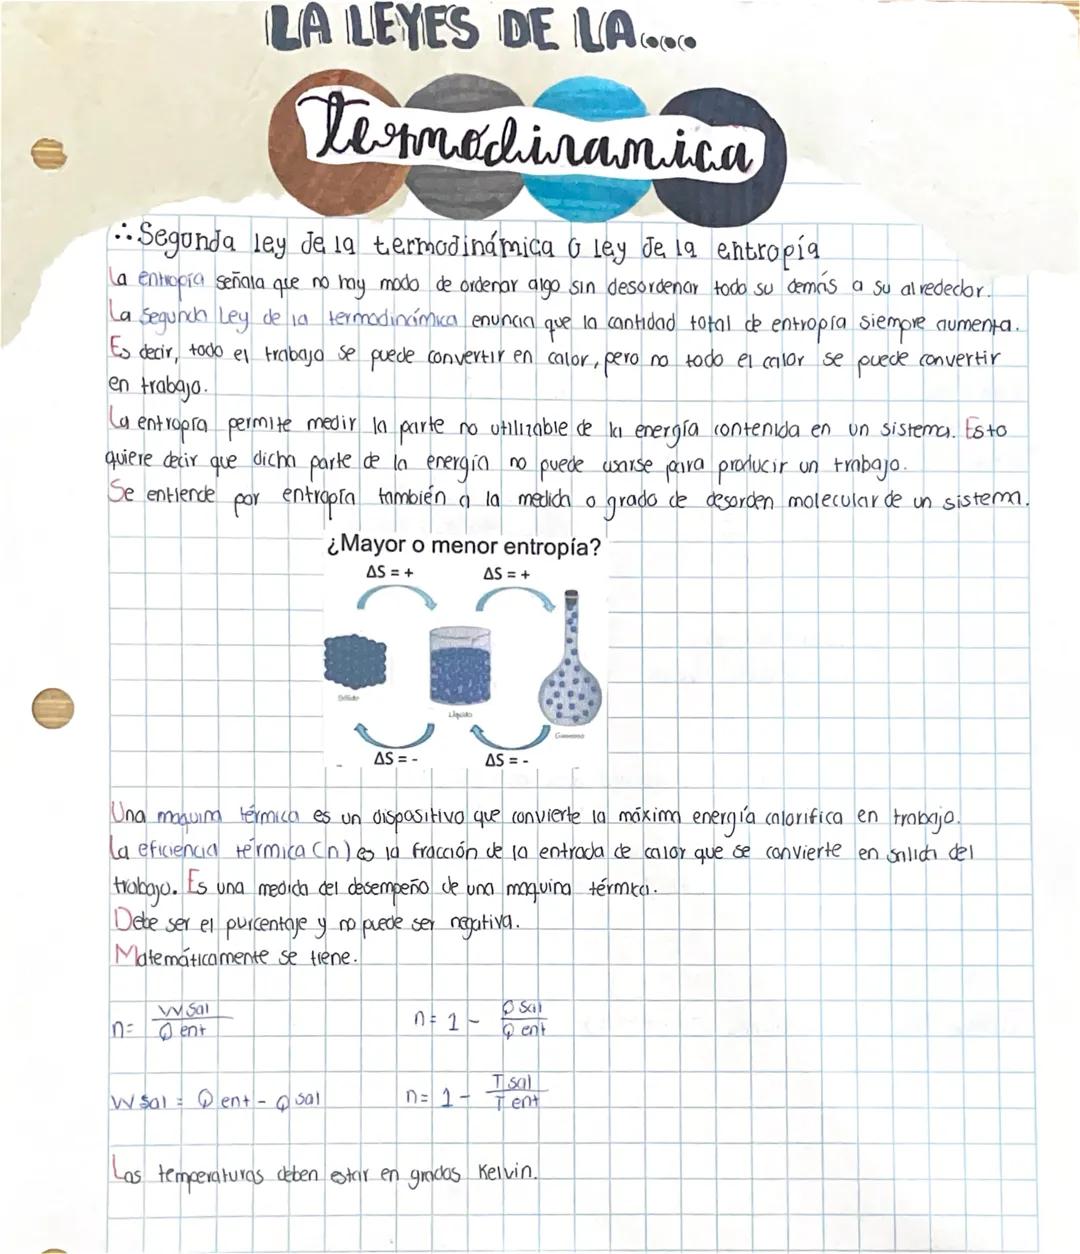 LA LEYES DE LA....
termodinamica
∴ Segunda ley de la termodinámica o ley de la entropía
La entropía señala que no hay modo de ordenar algo sin desordenar todo su demás a su alrededor.
La Segunda Ley de la termodinámica enuncia que la cantidad total de entropía siempre aumenta.
Es decir, todo el trabajo se puede convertir en calor, pero no todo el calor se puede convertir
en trabajo.
La entropía permite medir la parte no utilizable de la energía contenida en un sistema. Esto
quiere decir que dicha parte de la energía no puede usarse para producir un trabajo.
Se entiende por entropía también a la medida o grado de desorden molecular de un sistema.
¿Mayor o menor entropía?
ΔS = + ΔS = +
Sólido
Líquido
Gaseoso
ΔS = - ΔS = -
Una maquina térmica es un dispositivo que convierte la máxima energía calorifica en trabajo.
La eficiencia térmica (n) es la fracción de la entrada de calor que se convierte en salida del
trabajo. Es una medida del desempeño de una maquina térmica.
Debe ser el purcentaje y no puede ser negativa.
Matemáticamente se tiene.
n= W sal / Q ent n= 1 - Q sal / Q ent
W sal = Q ent - Q sal n= 1 - T sal / T ent
Las temperaturas deben estar en grados Kelvin.